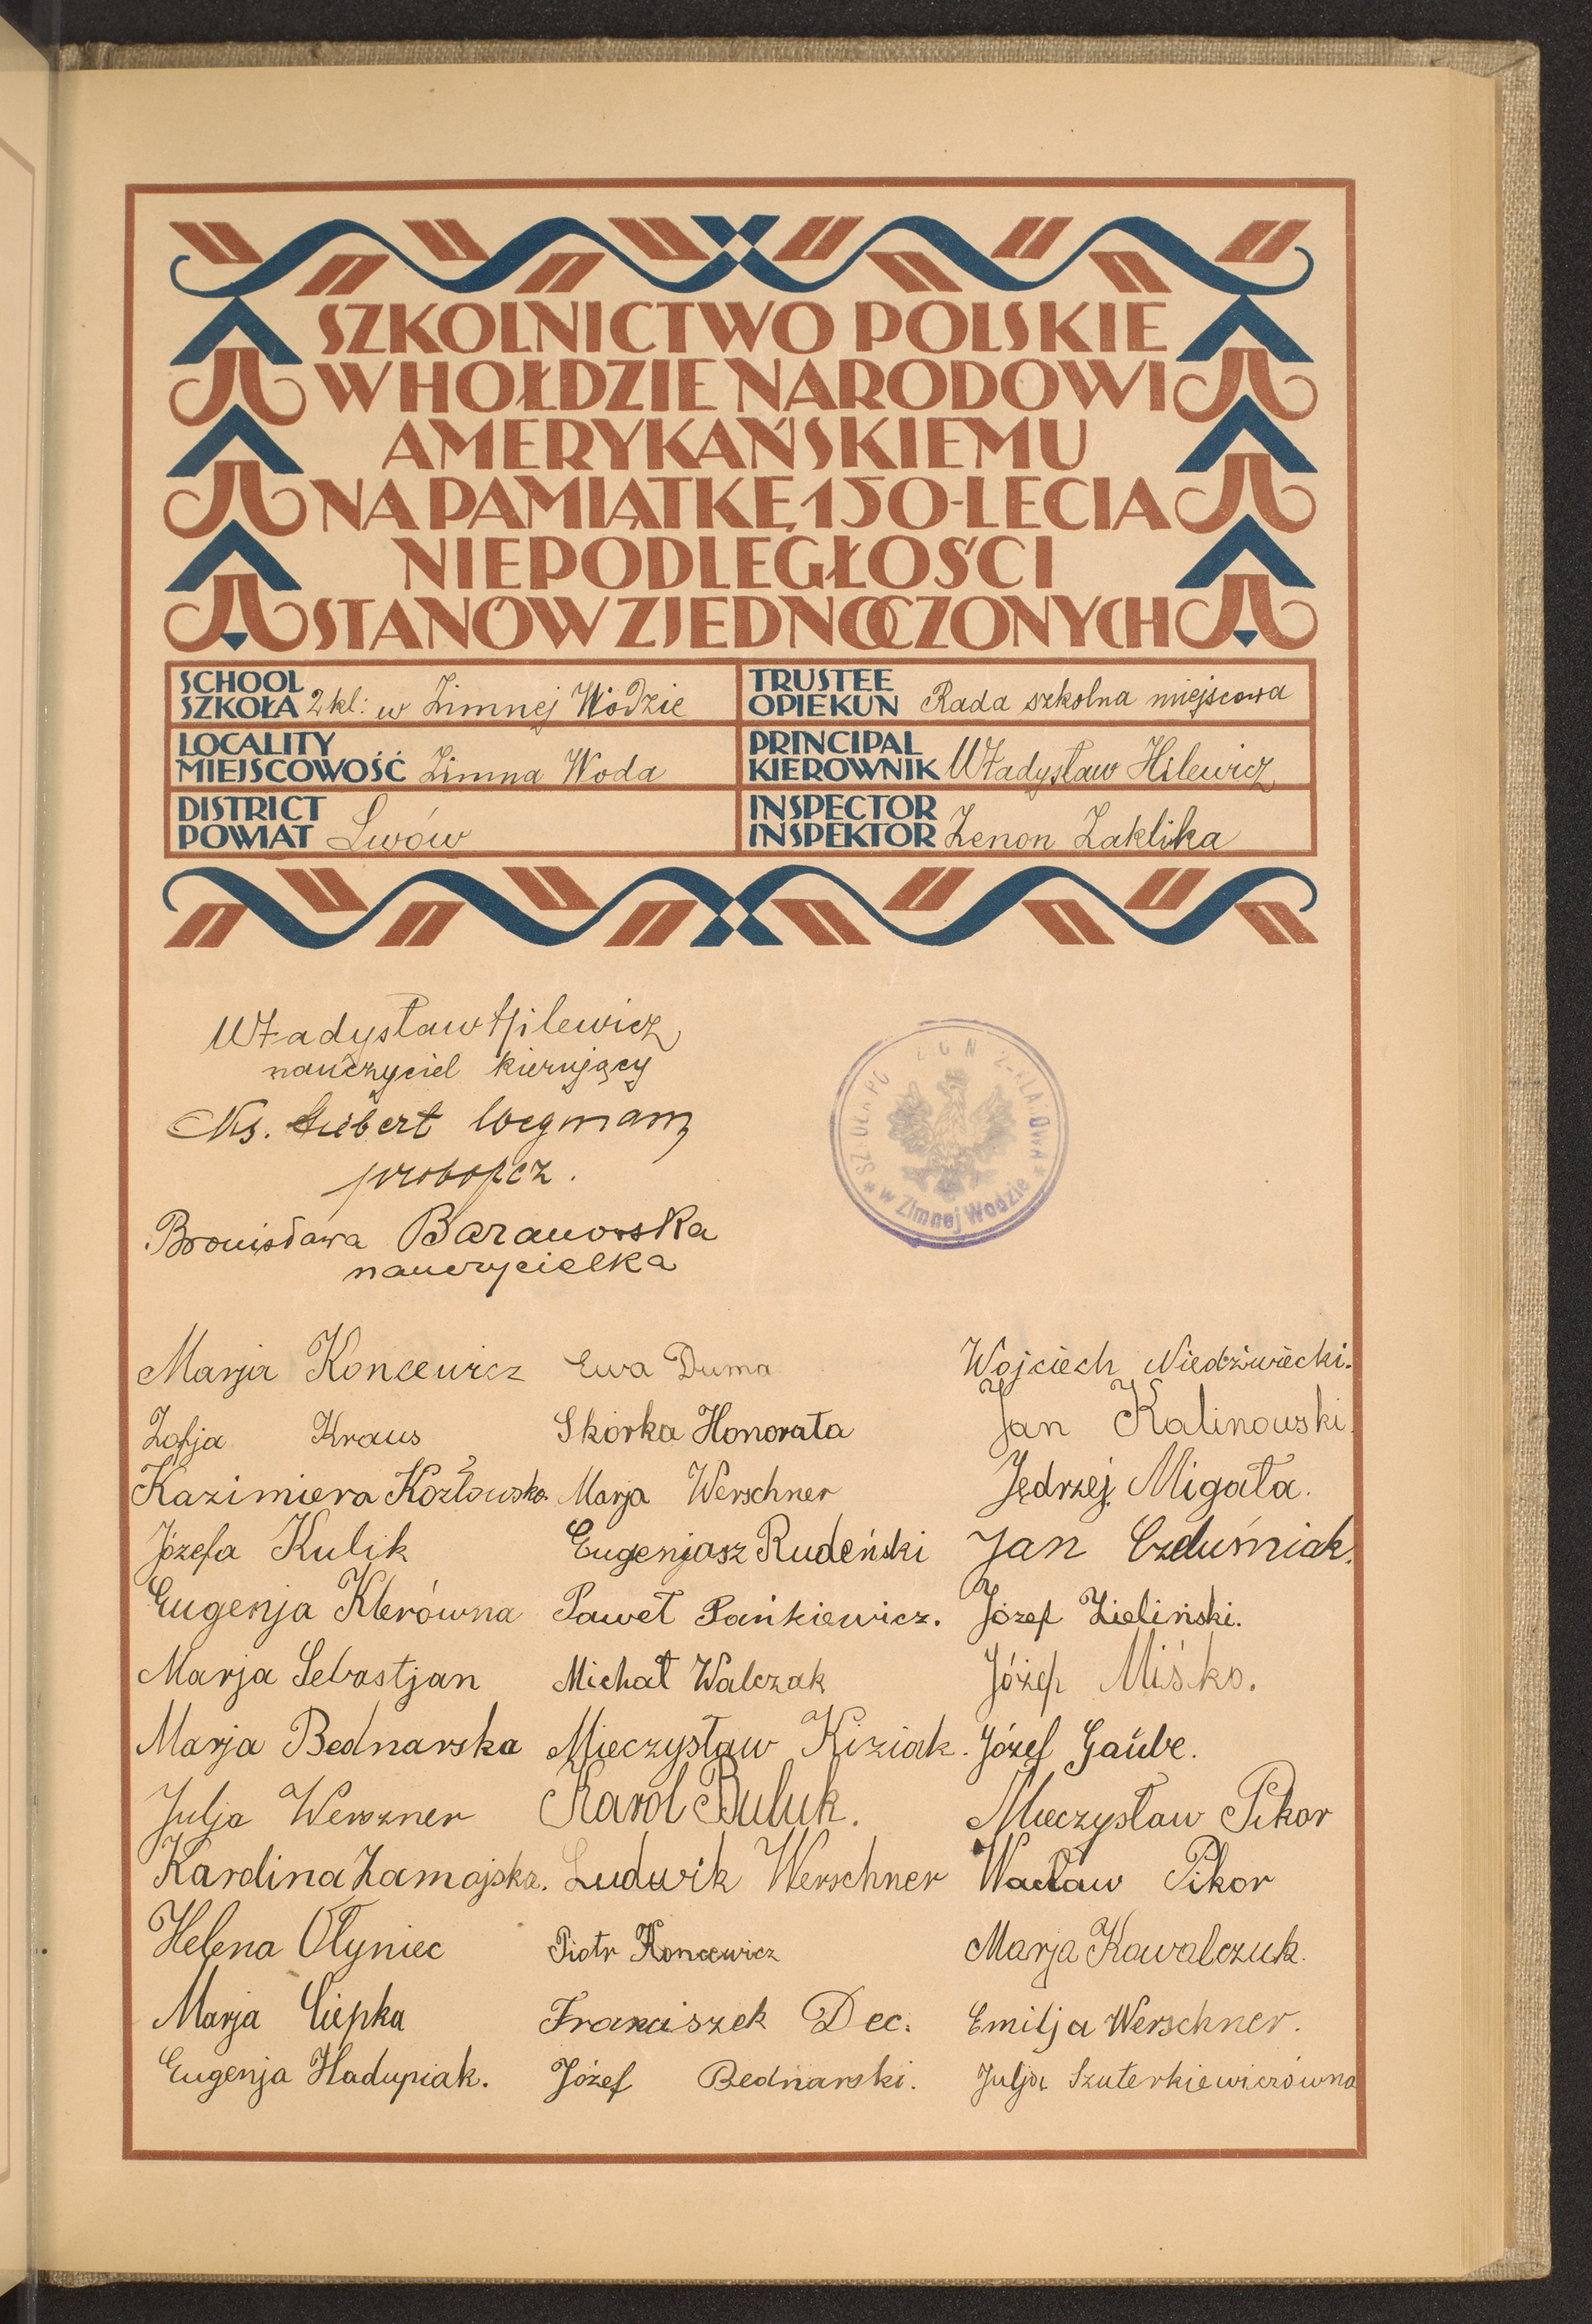 SZKOLNICTWO POLSKIE
W HOŁDZIE NARODOWI
AMERYKAŃSKIEMU
NA PAMIĄTKĘ 150-LECIA
NIEPODLEGŁOŚCI
STANÓW ZJEDNOCZONYCH
SCHOOL
SZKOŁA 2 kl: w Zimnej Wodzie
TRUSTEE
OPIEKUN Rada szkolna miejscowa
LOCALITY
MIEJSCOWOŚĆ Zimna Woda
PRINCIPAL
KIEROWNIK Władysław Hilewicz
DISTRICT
POWIAT Lwów
INSPECTOR
INSPEKTOR Zenon Zaklika
Władysław Hilewicz
nauczyciel kierujący
Ks. Hubert Wegmann
proboszcz.
Bronisława Baranowska
nauczycielka
* w Zimnej Wodzie *
Marja Koncewicz
Zofja Kraus
Kazimiera Kozłowska
Józefa Kulik
Eugenja Klerówna
Marja Sebastjan
Marja Bednarska
Julja Werszner
Karolina Zamojska.
Helena Ołyniec
Marja Ciepka
Eugenja Hadupiak.
Ewa Duma
Skórka Honorata
Marja Werschner
Eugenjusz Rudeński
Paweł Pańkiewicz.
Michał Walczak
Mieczysław Kiziak.
Karol Buluk.
Ludwik Werschner
Piotr Koncewicz
Franciszek Dec.
Józef Bednarski.
Wojciech Niedźwiecki.
Jan Kalinowski.
Jędrzej Migała.
Jan Czduśniak.
Józef Zieliński.
Józef Miśko.
Józef Gaübe.
Mieczysław Pikor
Wacław Pikor
Marja Kowalczuk.
Emilja Werschner.
Julja Szuterkiewiczówna